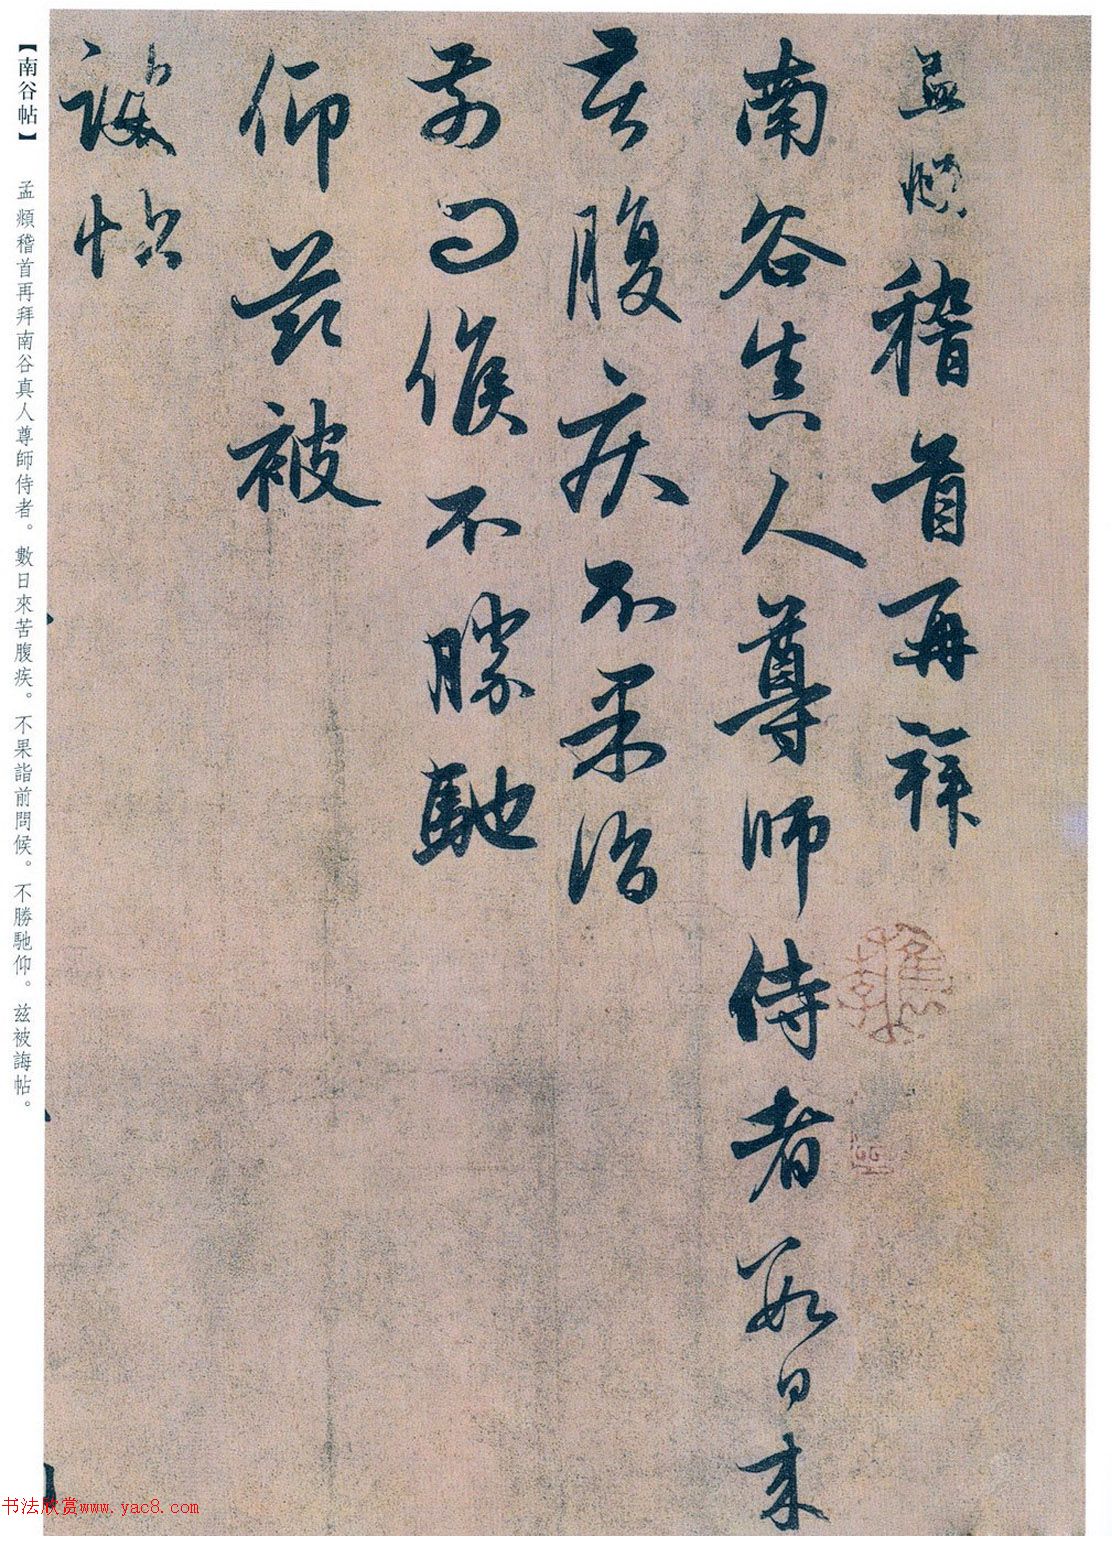 孟頫稽首再拜
南谷真人尊師侍者數日來
苦腹疾不果詣
前問候不勝馳
仰茲被
誨帖
【南谷帖】 孟頫稽首再拜南谷真人尊師侍者。數日來苦腹疾。不果詣前問候。不勝馳仰。兹被誨帖。
书法欣赏www.yac8.com